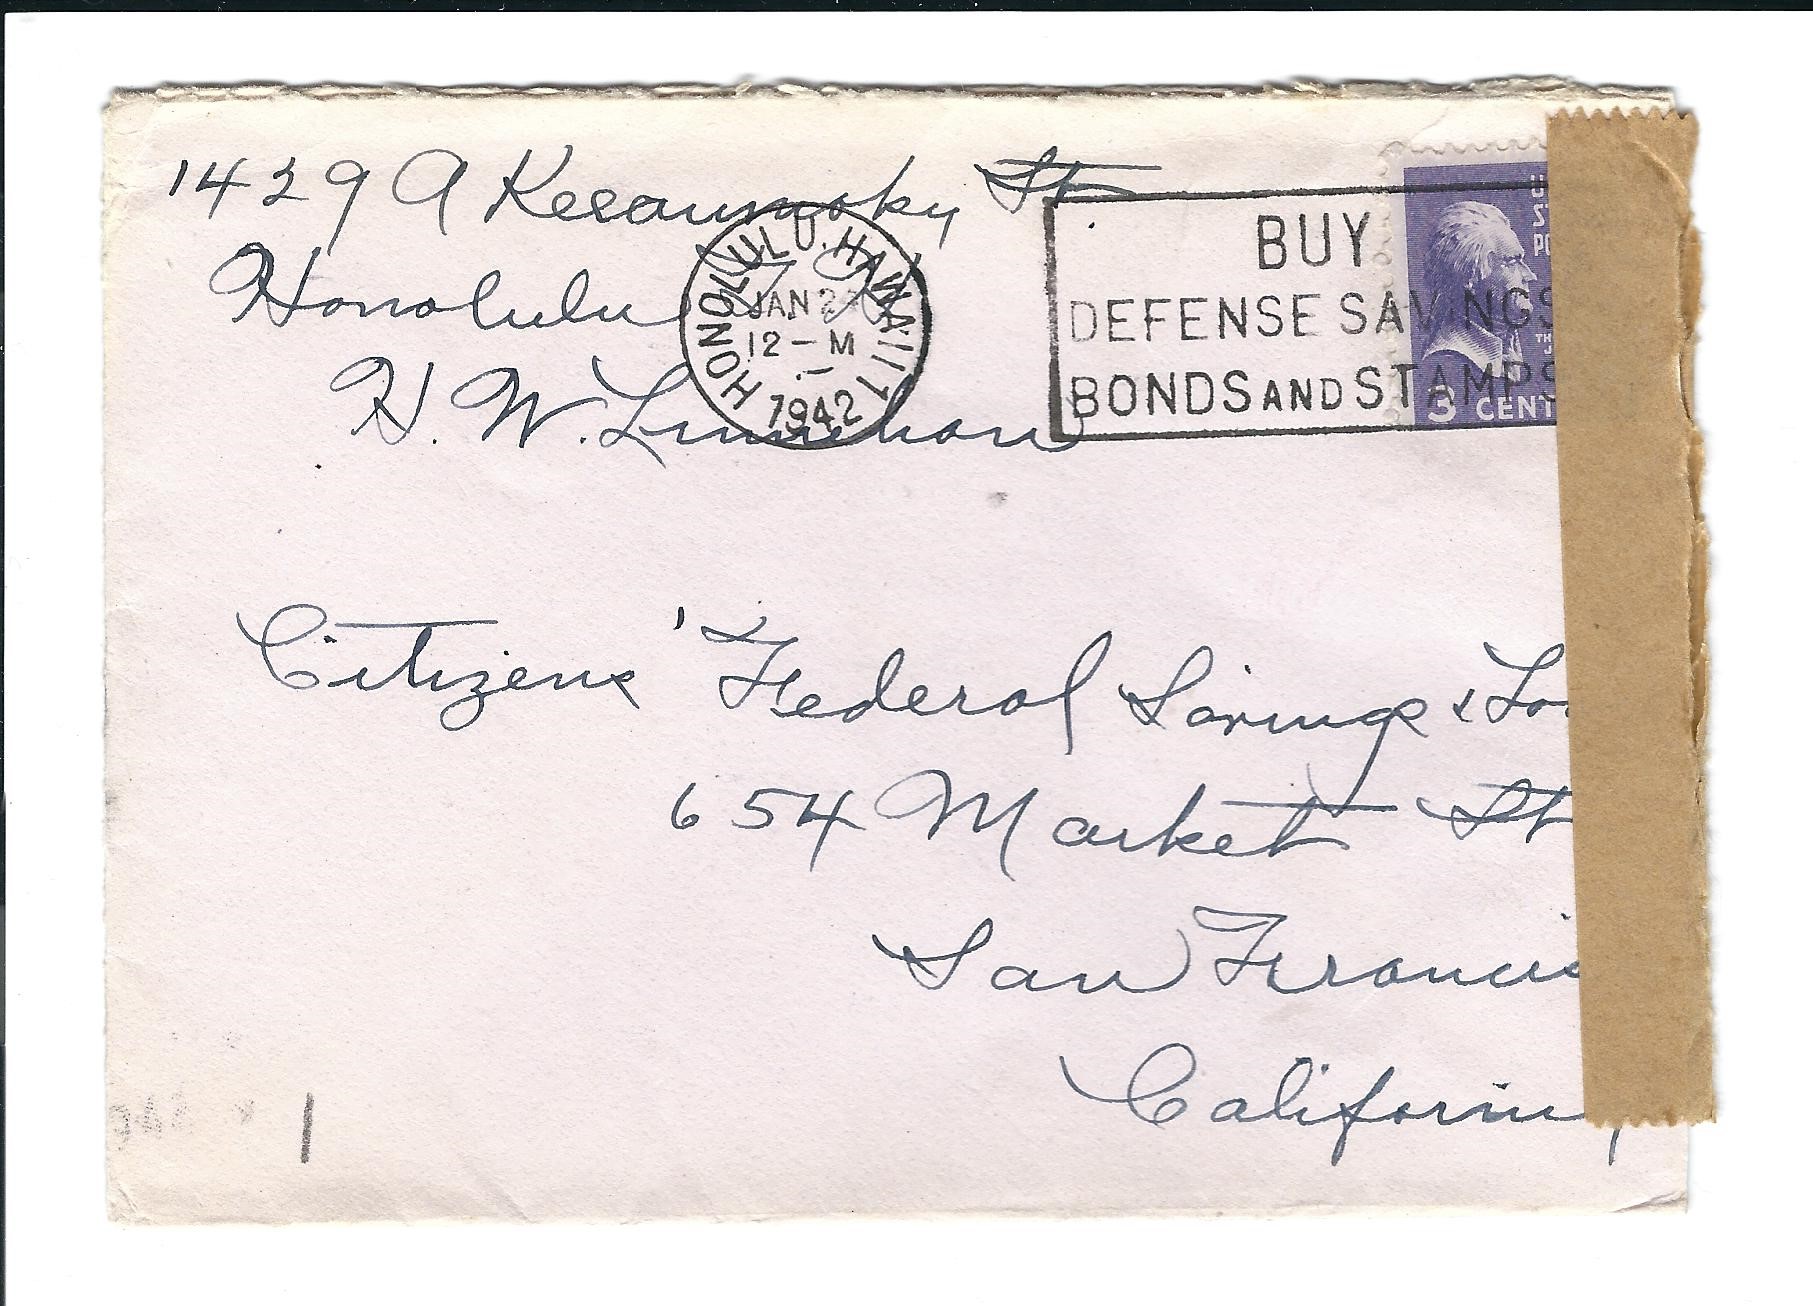 1429 A Keeaumoku St.
Honolulu T. H.
H. W. Linnehan
HONOLULU, HAWAII 1
JAN 2
12 - M
1942
BUY
DEFENSE SAVINGS
BONDS AND STAMPS
U
S
PO
TH
J
3 CENT
Citizens' Federal Savings & Loa
654 Market St
San Francis
California